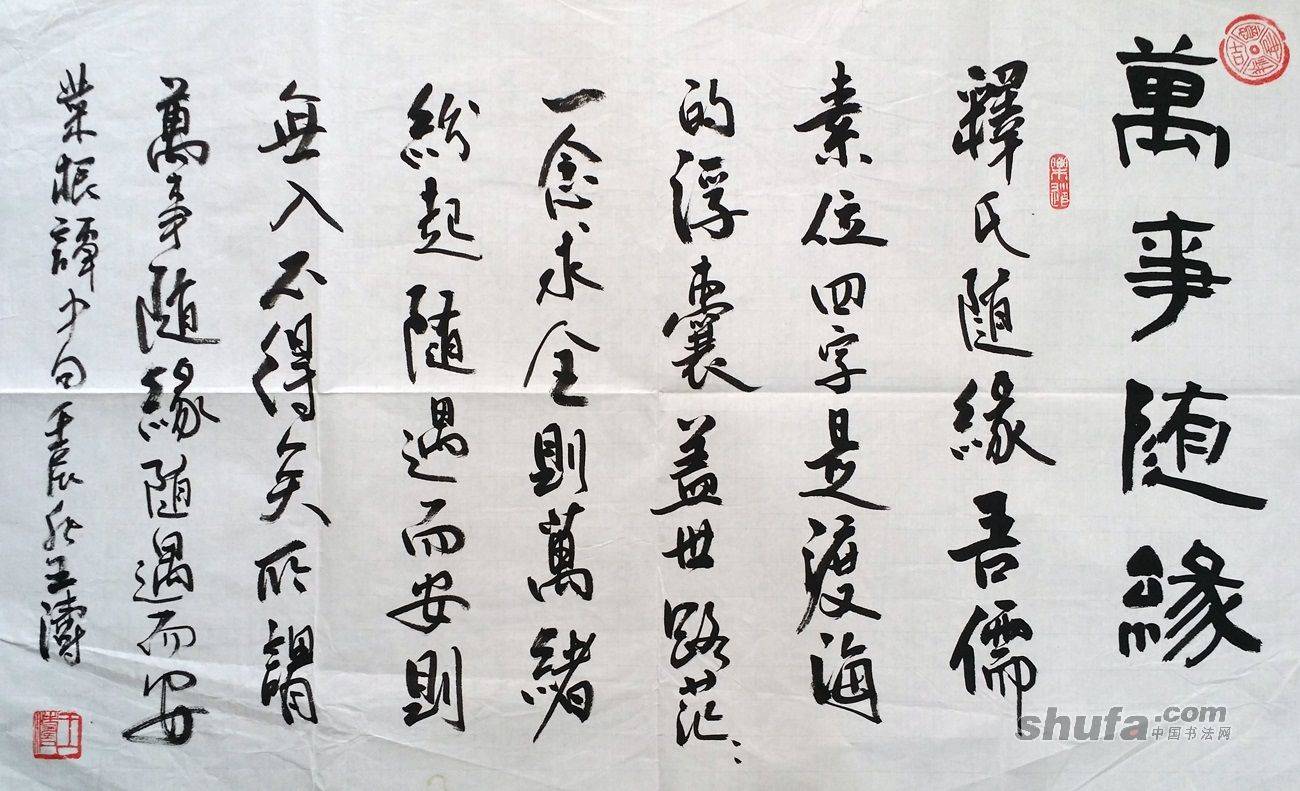 萬事随緣
釋氏随緣吾儒
素位四字是渡海
的浮囊蓋世路茫、
一念求全則萬緒
紛起随遇而安則
無入不得矣所謂
萬事随緣随遇而安
菜根譚少句壬辰秋王濤
shufa.com
中国书法网